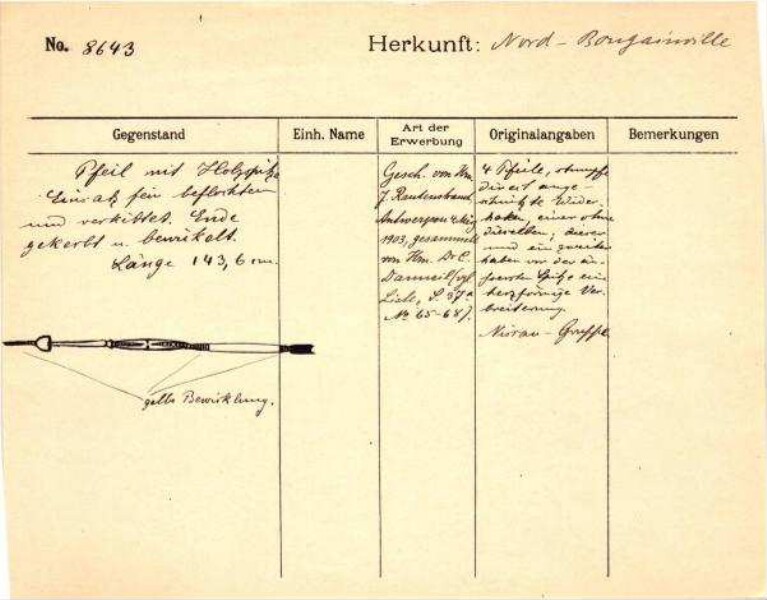 No. 8643
Herkunft: Nord-Bougainville
Gegenstand
Einh. Name
Art der Erwerbung
Originalangaben
Bemerkungen
Pfeil mit Holzspitze
Einsatz fein beflochten
und verkittet. Ende
gekerbt u. bewickelt.
Länge 143,6 cm.
gelbe Bewicklung.
Gesch. von Hrn.
J. Rautenstrauch,
Antwerpen
1903, gesammelt
von Hrn. Dr. C.
Danneil (vgl.
Liste, S. 37a
No 65-68).
4 Pfeile, stumpfe
direkt ange-
schnitzte Wider-
haken, einer ohne
dieselben; dieser
und ein zweiter
haben vor der äu-
ssersten Spitze eine
herzförmige Ver-
breiterung.
Nissan-Gruppe